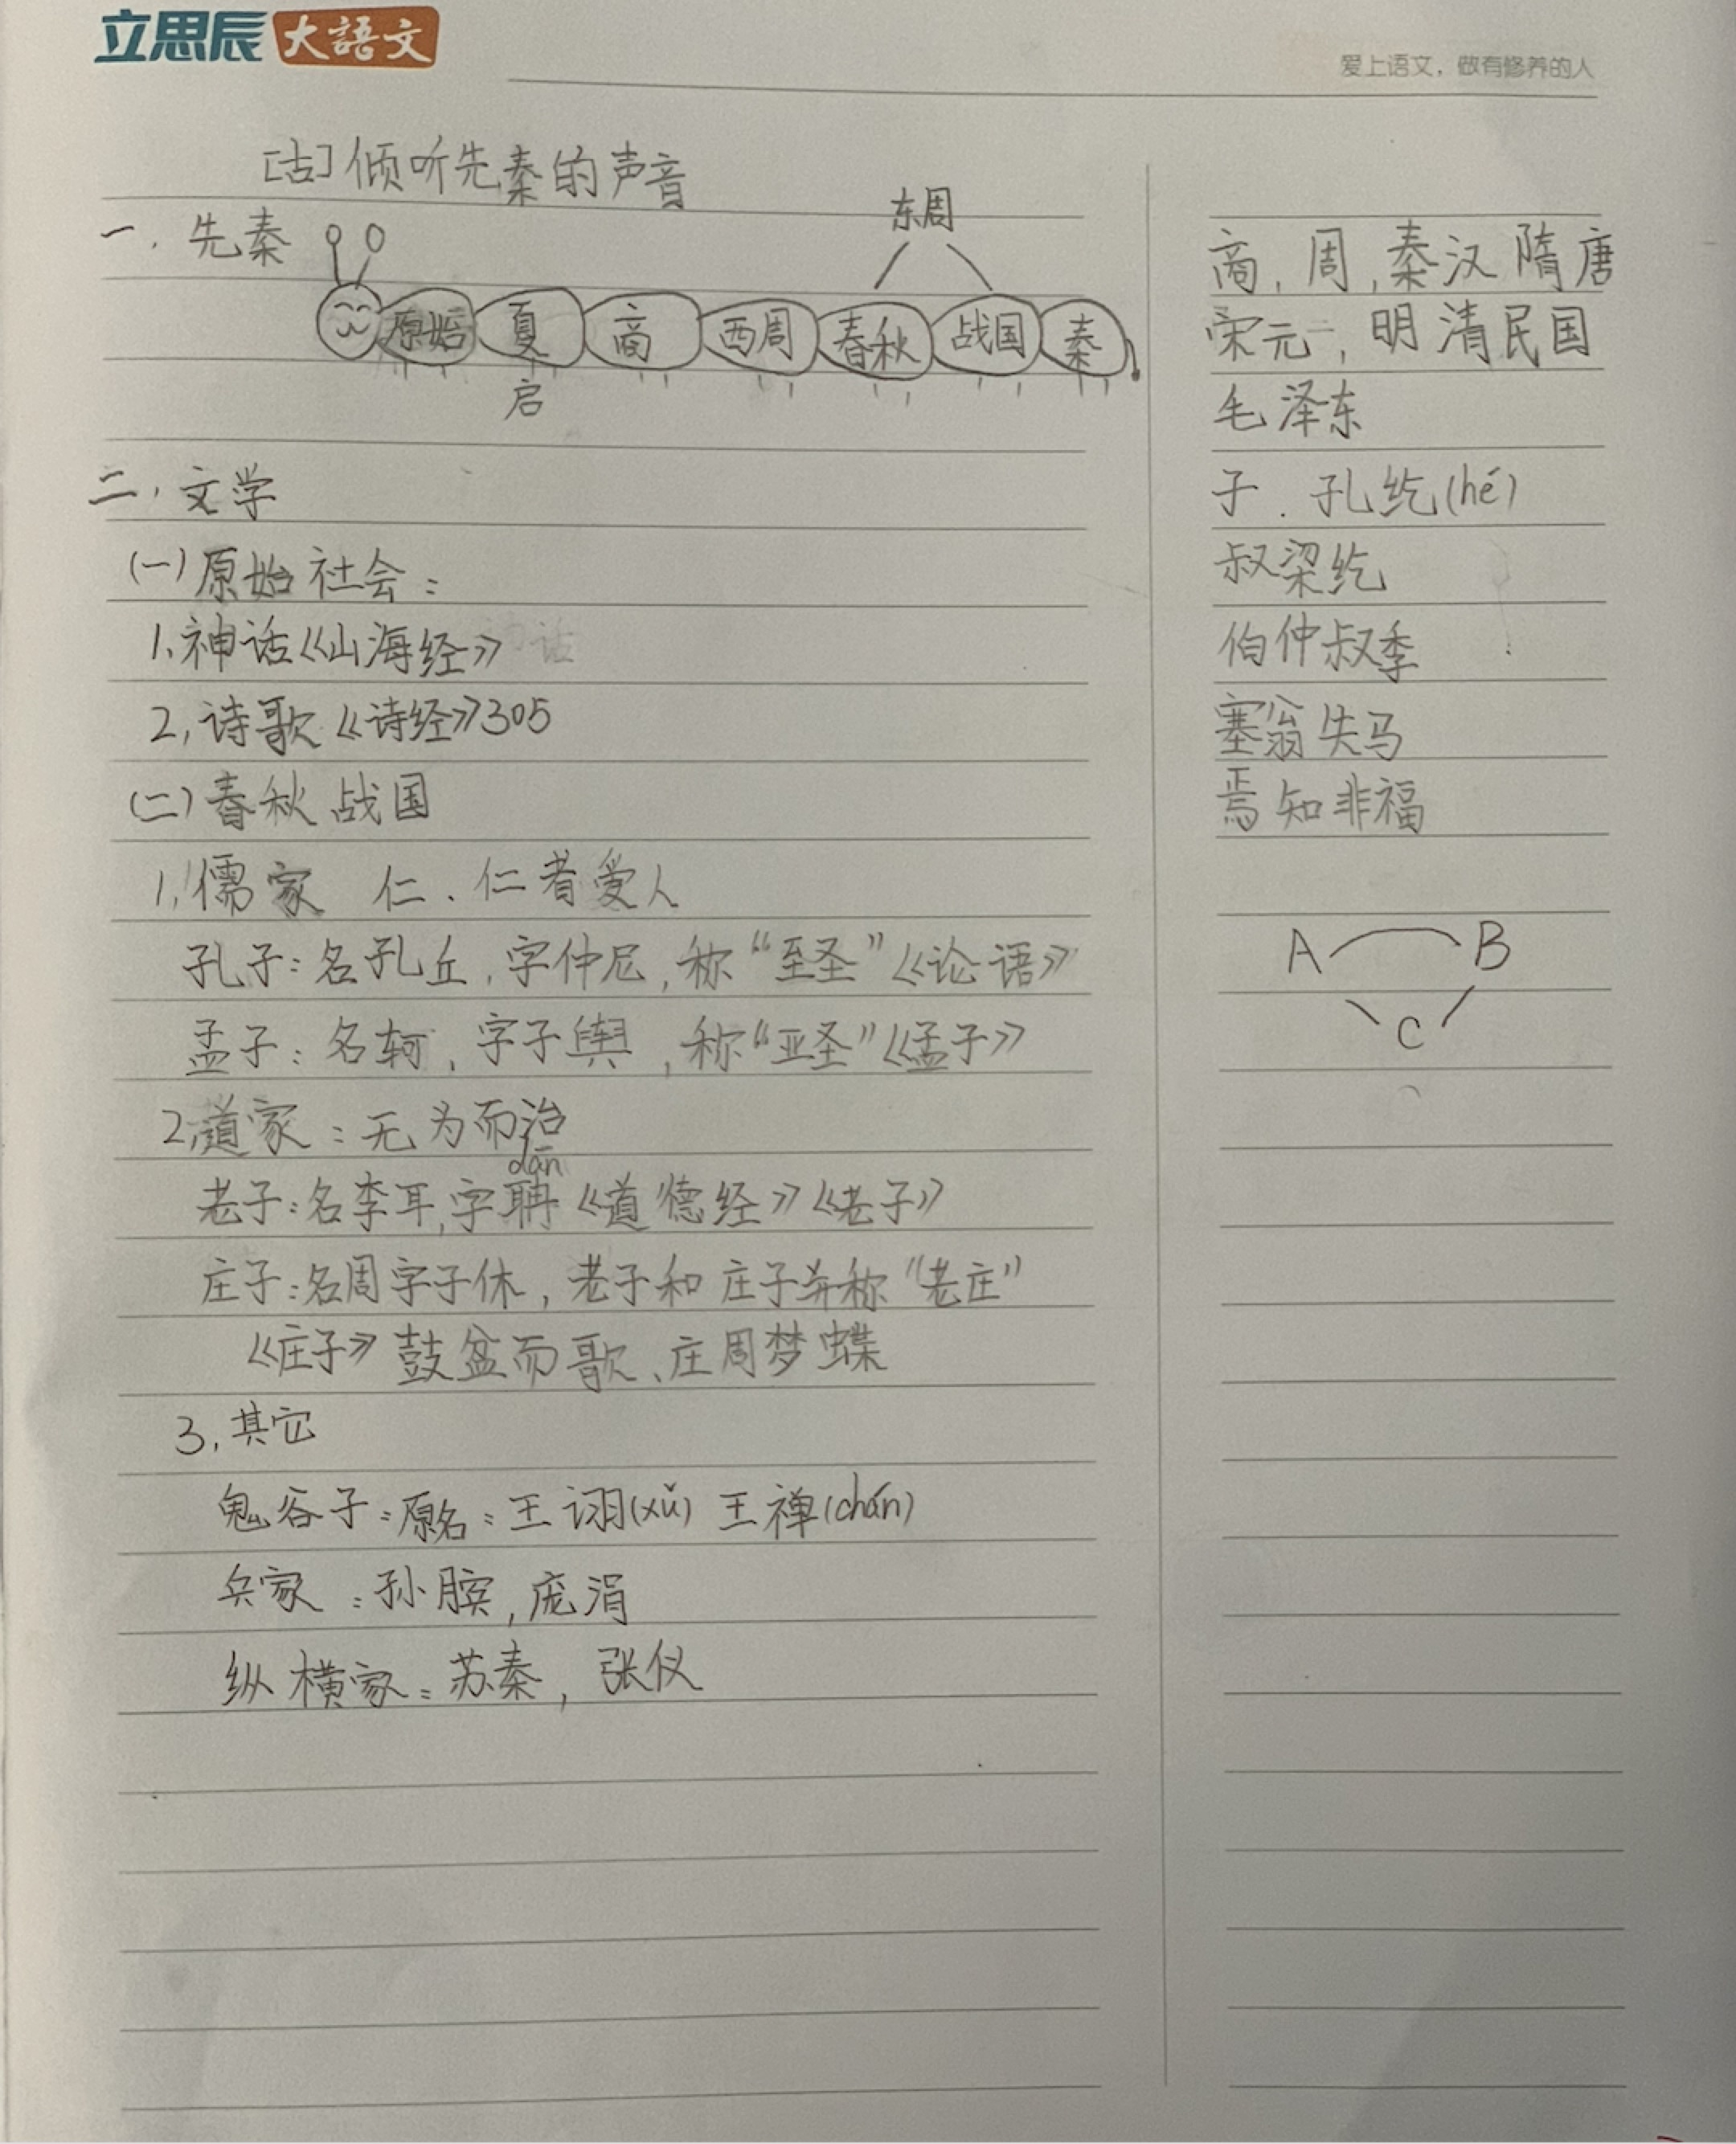 立思辰大語文
爱上语文，做有修养的人
[古]倾听先秦的声音
一．先秦
东周
原始 夏 商 西周 春秋 战国 秦
启
二．文学
(一)原始社会：
1.神话《山海经》
2,诗歌《诗经》305
(二)春秋战国
1,儒家 仁．仁者爱人
孔子：名孔丘，字仲尼，称“至圣”《论语》
孟子：名轲，字子舆，称“亚圣”《孟子》
2,道家：无为而治
dān
老子：名李耳,字聃《道德经》《老子》
庄子：名周字子休，老子和庄子并称“老庄”
《庄子》鼓盆而歌、庄周梦蝶
3,其它
鬼谷子：原名：王诩(xǔ) 王禅(chán)
兵家：孙膑,庞涓
纵横家：苏秦，张仪
商，周，秦汉隋唐
宋元，明清民国
毛泽东
子．孔纥(hé)
叔梁纥
伯仲叔季
塞翁失马
焉知非福
A B
C